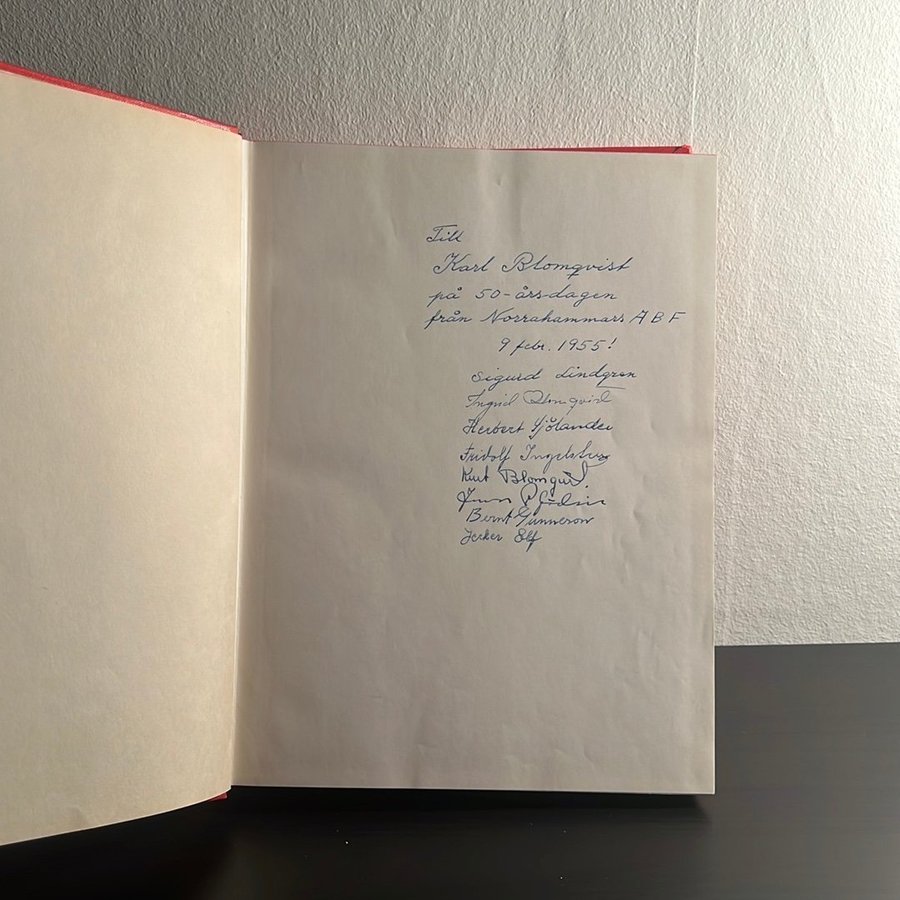 Till
Karl Blomqvist
på 50-årsdagen
från Norrahammars ABF
9 febr. 1955!
Sigurd Lindgren
Ingrid Blomqvist
Herbert Sjölander
Fridolf
Kurt Blomqvist.
Bernt Gunnerson
Elf